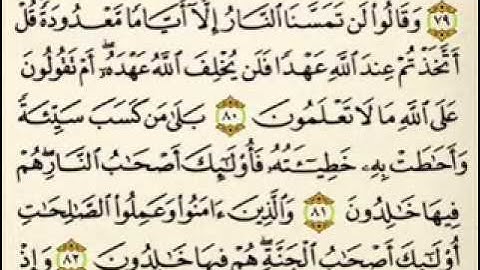 ٧٩ وَقَالُوا۟ لَن تَمَسَّنَا ٱلنَّارُ إِلَّآ أَيَّامًا مَّعْدُودَةً قُلْ
أَتَّخَذْتُمْ عِندَ ٱللَّهِ عَهْدًا فَلَن يُخْلِفَ ٱللَّهُ عَهْدَهُۥٓ أَمْ تَقُولُونَ
عَلَى ٱللَّهِ مَا لَا تَعْلَمُونَ ٨٠ بَلَىٰ مَن كَسَبَ سَيِّئَةً
وَأَحَٰطَتْ بِهِۦ خَطِيٓـَٔتُهُۥ فَأُو۟لَٰٓئِكَ أَصْحَٰبُ ٱلنَّارِ هُمْ
فِيهَا خَٰلِدُونَ ٨١ وَٱلَّذِينَ ءَامَنُوا۟ وَعَمِلُوا۟ ٱلصَّٰلِحَٰتِ
أُو۟لَٰٓئِكَ أَصْحَٰبُ ٱلْجَنَّةِ هُمْ فِيهَا خَٰلِدُونَ ٨٢ وَإِذْ